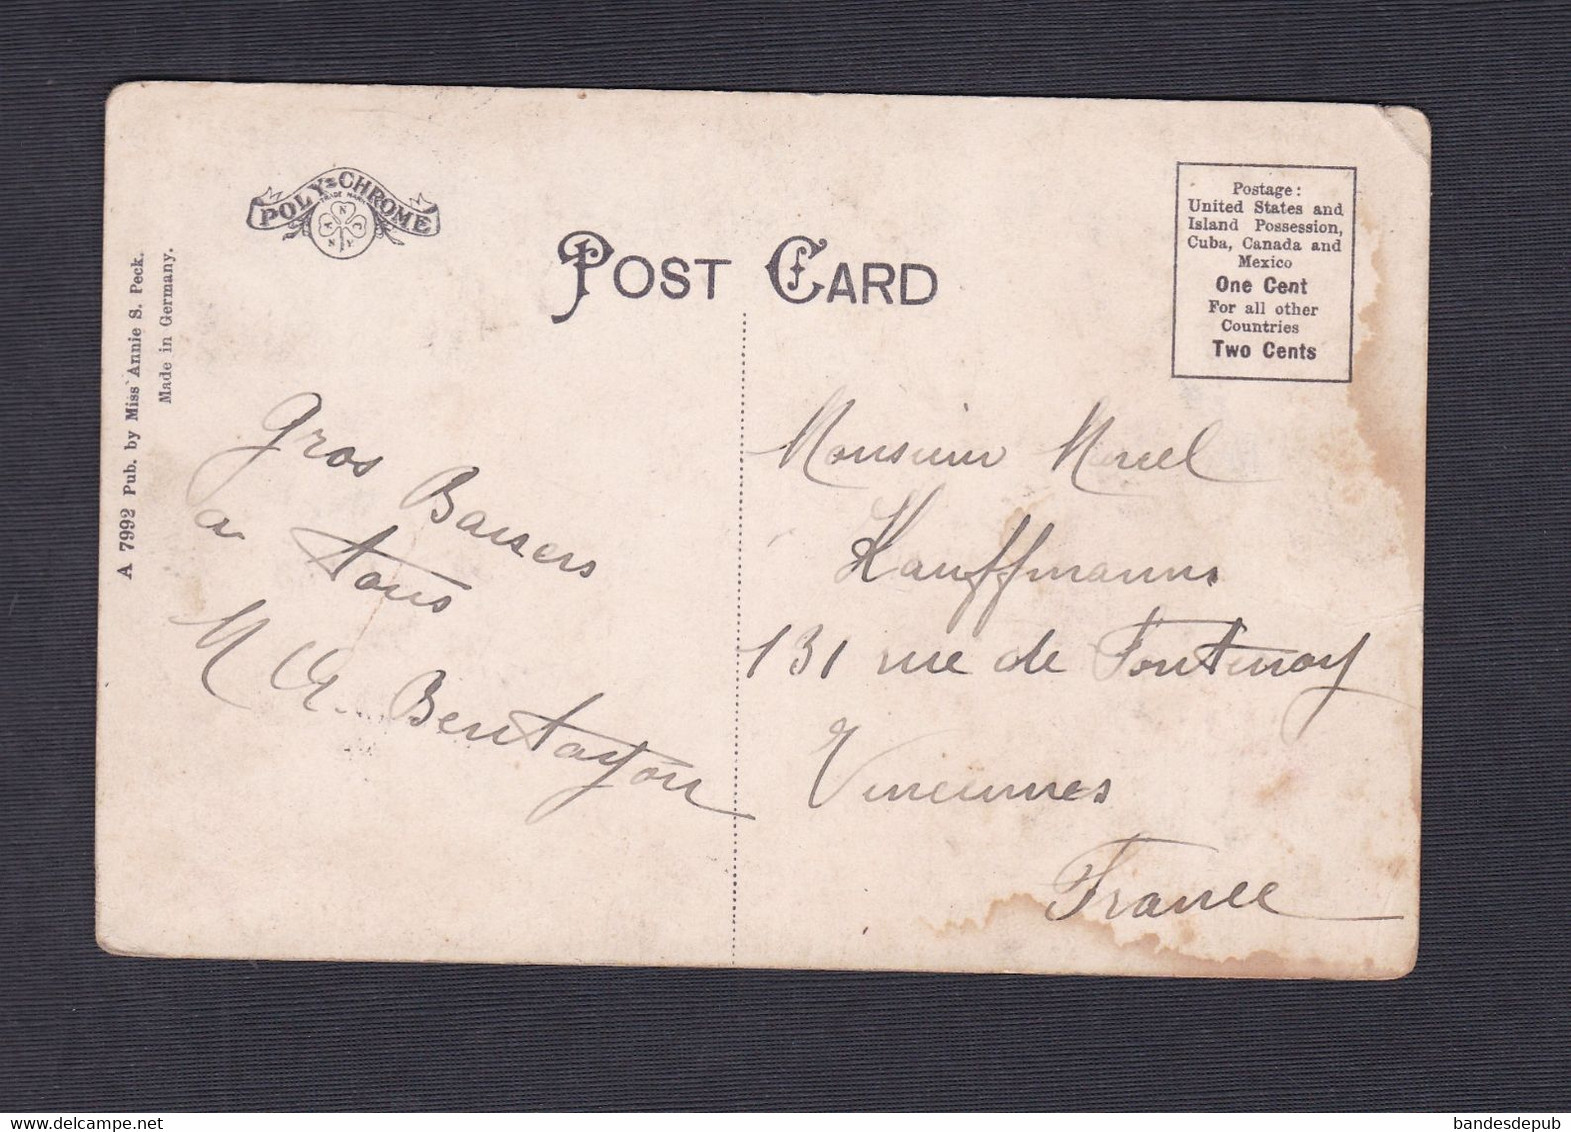 POLY-CHROME
TRADE MARK
POST CARD
Postage:
United States and
Island Possession,
Cuba, Canada and
Mexico
One Cent
For all other
Countries
Two Cents
A 7992 Pub. by Miss Annie S. Peck.
Made in Germany.
Gros Baisers
a tous
Bentayou
Monsieur Marcel
Kauffmann
131 rue de Fontenay
Vincennes
France
bandesdepub